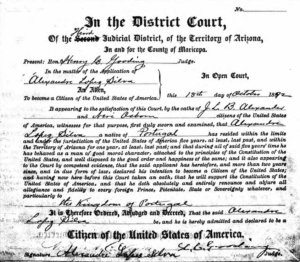 No.
In the District Court,
Of the Third Second Judicial District, of the Territory of Arizona,
In and for the County of Maricopa.
Present: Hon. Henry C. Gooding Judge.
In the matter of the Application of
Alexander Lopes Silva
An Alien,
In Open Court,
this 18th day of October 1892
To become a Citizen of the United States of America.
It appearing to the satisfaction of this Court, by the oaths of J. L. B. Alexander
and Neri Osborn citizens of the United States of
America, witnesses for that purpose, first duly sworn and examined, that Alexandre
Lopes Silva a native of Portugal has resided within the limits
and under the jurisdiction of the United States for five years, at least, last past, and within the
Territory of Arizona for one year, at least, last past; and that during all of said five years' time he
has behaved as a man of good moral character, attached to the principles of the Constitution of the
United States, and well disposed to the good order and happiness of the same; and it also appearing
to the Court by competent evidence, that the said applicant has heretofore, and more than two years
since, and in due form of law, declared his intention to become a Citizen of the United States; and
having now here before this Court taken an oath, that he will support the Constitution of the
United States of America, and that he doth absolutely and entirely renounce and abjure all
allegiance and fidelity to every foreign Prince, Potentate, State or Sovereignty whatever, and
particularly to
the Kingdom of Portugal
It is Therefore Ordered, Adjudged and Decreed, That the said Alexandre
Lopes Silva be, and he is hereby admitted and declared to be a
Citizen of the United States of America.
Alexandre Lopes Silva